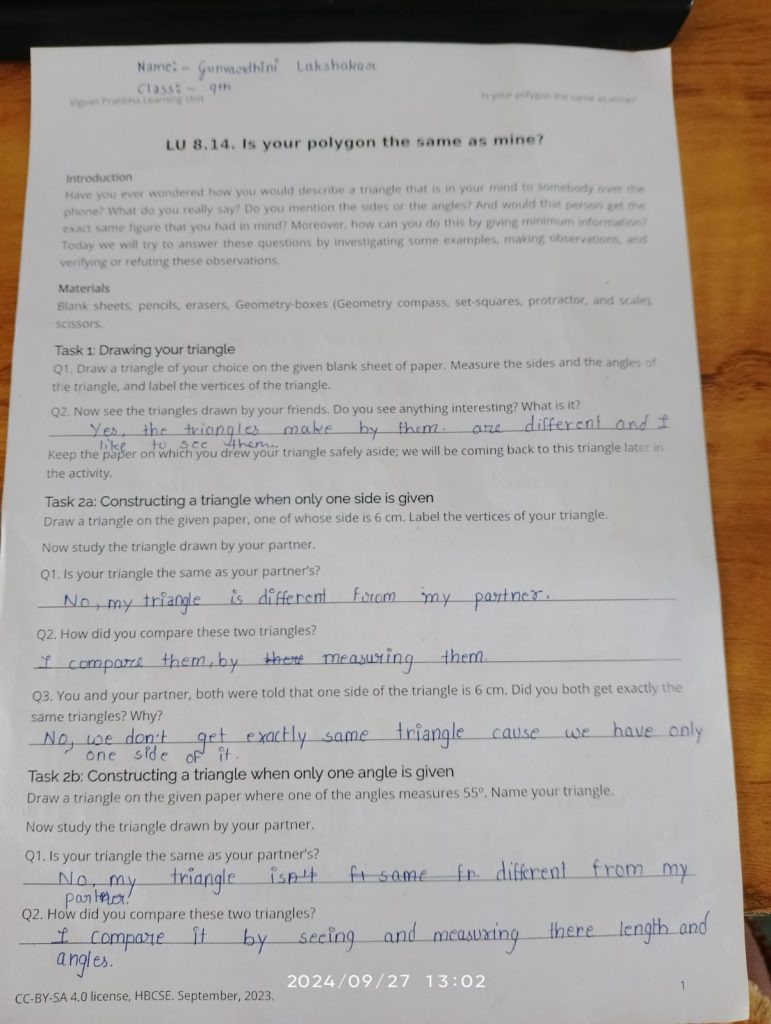 Name:- Gunvardhini Lakshakar
Class:- 9th
Vigyan Pratibha Learning Unit
Is your polygon the same as mine?
LU 8.14. Is your polygon the same as mine?
Introduction
Have you ever wondered how you would describe a triangle that is in your mind to somebody over the
phone? What do you really say? Do you mention the sides or the angles? And would that person get the
exact same figure that you had in mind? Moreover, how can you do this by giving minimum information?
Today we will try to answer these questions by investigating some examples, making observations, and
verifying or refuting these observations.
Materials
Blank sheets, pencils, erasers, Geometry-boxes (Geometry compass, set-squares, protractor, and scale),
scissors.
Task 1: Drawing your triangle
Q1. Draw a triangle of your choice on the given blank sheet of paper. Measure the sides and the angles of
the triangle, and label the vertices of the triangle.
Q2. Now see the triangles drawn by your friends. Do you see anything interesting? What is it?
Yes, the triangles make by them. are different and I
like to see them.
Keep the paper on which you drew your triangle safely aside; we will be coming back to this triangle later in
the activity.
Task 2a: Constructing a triangle when only one side is given
Draw a triangle on the given paper, one of whose side is 6 cm. Label the vertices of your triangle.
Now study the triangle drawn by your partner.
Q1. Is your triangle the same as your partner's?
No, my triangle is different from my partner.
Q2. How did you compare these two triangles?
I compare them, by there measuring them.
Q3. You and your partner, both were told that one side of the triangle is 6 cm. Did you both get exactly the
same triangles? Why?
No, we don't get exactly same triangle cause we have only
one side of it.
Task 2b: Constructing a triangle when only one angle is given
Draw a triangle on the given paper where one of the angles measures 55º. Name your triangle.
Now study the triangle drawn by your partner.
Q1. Is your triangle the same as your partner's?
No, my triangle isn't same different from my
partner.
Q2. How did you compare these two triangles?
I compare it by seeing and measuring there length and
angles.
2024/09/27 13:02
1
CC-BY-SA 4.0 license, HBCSE. September, 2023.